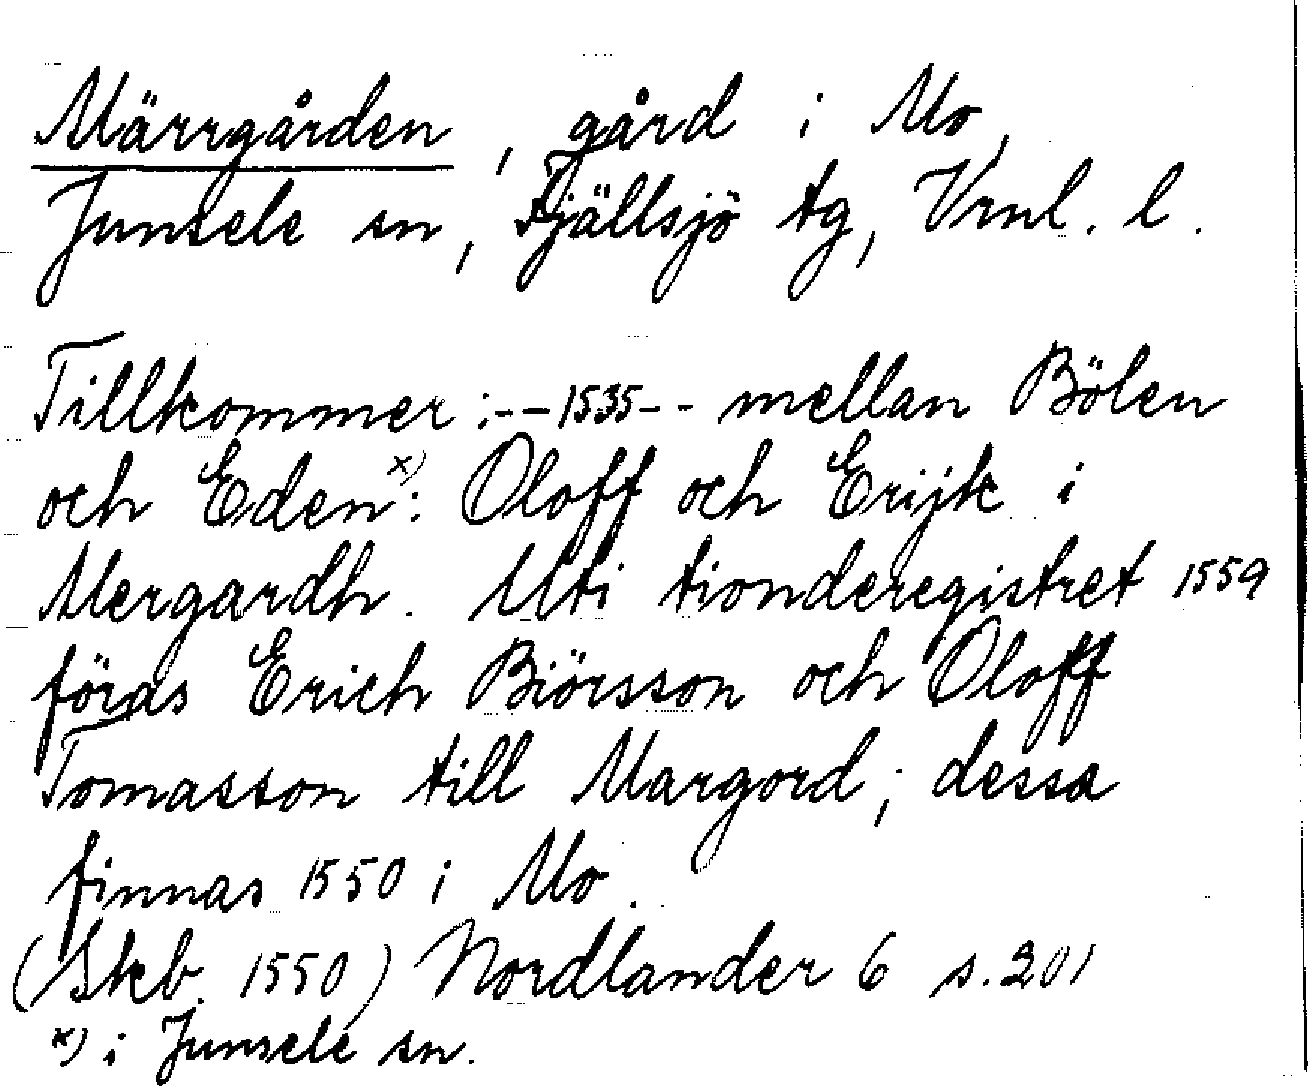 Märrgården, gård i Mo,
Junsele sn, Fjällsjö tg, Vrnl. l.
Tillkommer:--1535-- mellan Bölen
och Eden x): Oloff och Erijk i
Mergardh. Uti tionderegistret 1559
föras Erich Biörsson och Oloff
Tomasson till Margord; dessa
finnas 1550 i Mo.
(Skb. 1550) Nordlander 6 s. 201
x) i Junsele sn.